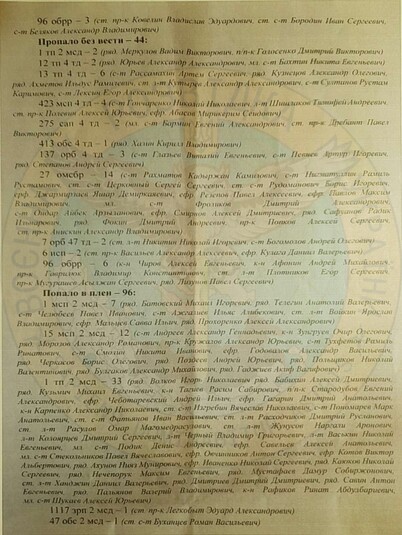 96 обрр – 3 (ст. пр-к Ковелин Владислав Эдуардович, ст. с-т Бородин Иван Сергеевич,
с-т Беляков Александр Владимирович)
Пропало без вести – 44:
1 тп 2 мсд – 2 (ряд. Меркулов Вадим Викторович, п/п-к Голосенко Дмитрий Викторович)
12 тп 4 тд – 2 (ряд. Юрьев Александр Александрович, мл. с-т Бахтин Никита Евгеньевич)
13 тп 4 тд – 6 (с-т Рассомахин Артем Сергеевич, ряд. Кузнецов Александр Олегович,
ряд. Ахметов Ильфат Рамилевич, Александр Александрович, с-т Султанов Рустам
Каримович, с-т Лексин Егор Александрович)
423 мсп 4 тд – 4 (с-т Гончаренко Николай Николаевич, Андреевич,
ст. пр-к Полевин Алексей Юрьевич, ефр. Абасов)
275 сап 4 тд – 2 (мл. с-т Бормин Евгений Александрович, ст. пр-к Павел
Викторович)
413 обс 4 тд – 1 (ряд. Хазин Кирилл Владимирович)
137 орб 4 тд – 3 (с-т Глазьев Виталий Евгеньевич, с-т Певцев Артур Игоревич,
ряд. Степанов Андрей Сергеевич)
27 омсбр – 14 (с-т Рахматов Кадыржан Камилович, с-т Руслан
Рустамович, ст. с-т Церковный Сергей Сергеевич, ст. с-т Борис Игоревич,
ефр. Янаир ефр. Резепов Павел Алексеевич, ефр. Павлов Максим
Владимирович, мл. с-т Фроликов Дмитрий Александрович,
с-т Ондар Айбек Арзыланович, ефр. Смирнов Алексей Дмитриевич, ряд. Сафранов Радик
ряд. Фокин Дмитрий Андреевич, пр-к Попков Алексей Сергеевич,
ст. пр-к Анискин Александр Владимирович)
7 орб 47 тд – 2 (ст. л-т Никитин Николай Игоревич, с-т Богомолов Андрей Олегович)
6 исп – 2 (с-т Васильев Александр Алексеевич, ефр. Кушага Даниил Валерьевич)
96 обрр – 6 (к-н Чиров Алексей Евгеньевич, к-н Афонин Андрей Михайлович,
пр-к Гаврилюк Владимир Константинович, ст. л-т Плотников Егор Сергеевич,
пр-к Мугурашев Асылжан Сергеевич, ряд. Ляхунов Павел Сергеевич)
Попало в плен – 96:
1 мсп 2 мсд – 7 (ряд. Батовский Михаил Игоревич, ряд. Телегин Анатолий Валерьевич,
с-т Челюбеев Никита Иванович, с-т Ажгалиев Ильяс Алибекович, ст. л-т Войкин Ярослав
Владимирович, ефр. Мальцев Савва Ильич, ряд. Прохорович Алексей Александрович)
15 мсп 2 мсд – 12 (с-т Андреев Александр Геннадьевич, к-н Тунгруев Очир Олегович,
ряд. Морозов Александр Романович, пр-к Кружалов Александр Юрьевич, с-т Тухфетов Рамиль
Ринатович, с-т Смолин Никита Иванович, ефр. Годовалов Александр Васильевич,
ряд. Черкасов Борис Олегович, ряд. Поздеев Андрей Юрьевич, ряд. Полмарков Николай
Валентинович, ряд. Булгаков Александр Михайлович, ряд. Гаджиев Акиф Вагифович)
1 тп 2 мсд – 33 (ряд. Волков Игорь Николаевич, ряд. Бабихин Алексей Дмитриевич,
ряд. Кузьмич Михаил Евгеньевич, к-н Тагиев Расим Сабирович, п/п-к Стародубов Евгений
Александрович, ефр. Чеботаревский Андрей Ильич, ефр. Гагарин Дмитрий Анатольевич,
к-н Карпенко Александр Николаевич, ст. с-т Погребин Вячеслав Николаевич, с-т Пономарев Марк
Анатольевич, ст. с-т Фатьянов Иван Васильевич, ст. л-т Расходчиков Дмитрий Русланович,
л-т Расулов Омар Магомедрасулович, ст. л-т Жунусов Наргали Аронович,
л-т Коломыцев Дмитрий Сергеевич, л-т Черный Владимир Григорьевич, л-т Васькин Николай
Евгеньевич, мл. с-т Подик Денис Андреевич, ефр. Савельев Алексей Анатольевич,
мл. с-т Стекольщиков Павел Вячеславович, ефр. Овчинников Антон Сергеевич, ефр. Конев Виктор
Альбертович, ряд. Ахунов Нияз Мунирович, ефр. Иваненко Николай Сергеевич, ряд. Каюков Николай
Сергеевич, ряд. Нечепорук Максим Евгеньевич, ряд. Мустафаев Дамир Собиржонович,
ст. л-т Хандожко Даниил Валерьевич, ряд. Дмитриев Дмитрий Дмитриевич, ряд. Савин Антон
Евгеньевич, ряд. Пальянов Валерий Владимирович, к-н Рафиков Ринат Абдулбариевич,
мл. с-т Шукаев Алексей Юрьевич)
1117 зрп 2 мсд – 1 (ст. пр-к Легкобыт Эдуард Александрович)
47 обс 2 мсд – 1 (ст. с-т Буханцев Роман Васильевич)